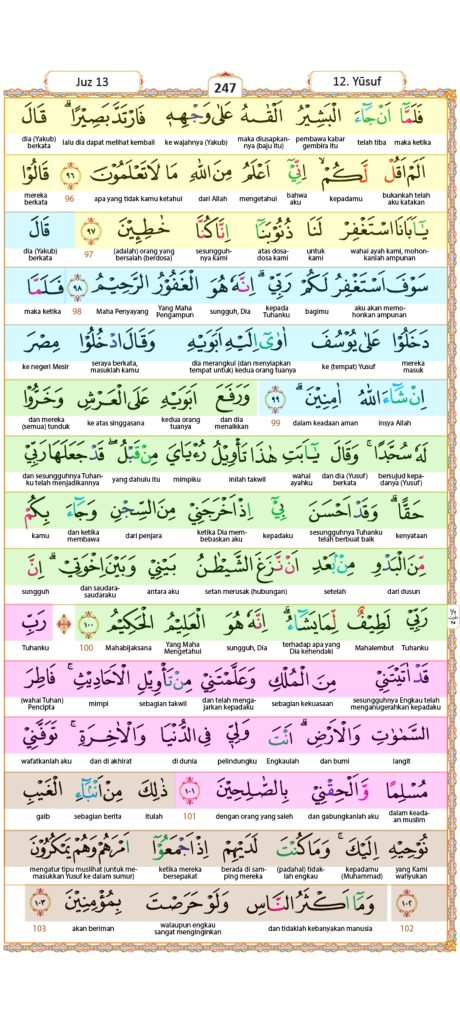 Juz 13
247
12. Yūsuf
فَلَمَّآ اَنْ جَاۤءَ الْبَشِيْرُ اَلْقٰىهُ عَلٰى وَجْهِهٖ فَارْتَدَّ بَصِيْرًاۗ قَالَ
maka ketika telah tiba pembawa kabar gembira itu maka diusapkan-nya (baju itu) ke wajahnya (Yakub) lalu dia dapat melihat kembali dia (Yakub) berkata
اَلَمْ اَقُلْ لَّكُمْۙ اِنِّيْٓ اَعْلَمُ مِنَ اللّٰهِ مَا لَا تَعْلَمُوْنَ ٩٦ قَالُوْا
bukankah telah aku katakan kepadamu bahwa aku mengetahui dari Allah apa yang tidak kamu ketahui 96 mereka berkata
يٰٓاَبَانَا اسْتَغْفِرْ لَنَا ذُنُوْبَنَآ اِنَّا كُنَّا خٰطِـِٕيْنَ ٩٧ قَالَ
wahai ayah kami, mohon-kanlah ampunan untuk kami atas dosa-dosa kami sesunguh-nya kami (adalah) orang yang bersalah (berdosa) 97 dia (Yakub) berkata
سَوْفَ اَسْتَغْفِرُ لَكُمْ رَبِّيْۗ اِنَّهٗ هُوَ الْغَفُوْرُ الرَّحِيْمُ ٩٨ فَلَمَّا
aku akan memo-honkan ampunan bagimu kepada Tuhanku sungguh, Dia Yang Maha Pengampun Maha Penyayang 98 maka ketika
دَخَلُوْا عَلٰى يُوْسُفَ اٰوٰٓى اِلَيْهِ اَبَوَيْهِ وَقَالَ ادْخُلُوْا مِصْرَ
mereka masuk ke (tempat) Yusuf dia merangkul (dan menyiapkan tempat untuk) kedua orang tuanya seraya berkata, masuklah kamu ke negeri Mesir
اِنْ شَاۤءَ اللّٰهُ اٰمِنِيْنَۗ ٩٩ وَرَفَعَ اَبَوَيْهِ عَلَى الْعَرْشِ وَخَرُّوْا
insya Allah dalam keadaan aman 99 dan dia menaikkan kedua orang tuanya ke atas singgasana dan mereka (semua) tunduk
لَهٗ سُجَّدًاۚ وَقَالَ يٰٓاَبَتِ هٰذَا تَأْوِيْلُ رُءْيَايَ مِنْ قَبْلُ ۖقَدْ جَعَلَهَا رَبِّيْ
bersujud kepa-danya (Yusuf) dan dia (Yusuf) berkata wahai ayahku inilah takwil mimpiku yang dahulu itu dan sesungguhnya Tuhan-ku telah menjadikannya
حَقًّاۗ وَقَدْ اَحْسَنَ بِيْٓ اِذْ اَخْرَجَنِيْ مِنَ السِّجْنِ وَجَاۤءَ بِكُمْ
kenyataan sesungguhnya Tuhanku telah berbuat baik kepadaku ketika Dia mem-bebaskan aku dari penjara dan ketika membawa kamu
مِّنَ الْبَدْوِ مِنْۢ بَعْدِ اَنْ نَّزَغَ الشَّيْطٰنُ بَيْنِيْ وَبَيْنَ اِخْوَتِيْۗ اِنَّ
dari dusun setelah setan merusak (hubungan) antara aku dan saudara-saudaraku sungguh
رَبِّيْ لَطِيْفٌ لِّمَا يَشَاۤءُۗ اِنَّهٗ هُوَ الْعَلِيْمُ الْحَكِيْمُ ١٠٠ رَبِّ
Tuhanku Mahalembut terhadap apa yang Dia kehendaki sungguh, Dia Yang Maha Mengetahui Mahabijaksana 100 Tuhanku
قَدْ اٰتَيْتَنِيْ مِنَ الْمُلْكِ وَعَلَّمْتَنِيْ مِنْ تَأْوِيْلِ الْاَحَادِيْثِۚ فَاطِرَ
sesungguhnya Engkau telah menganugerahkan kepadaku sebagian kekuasaan dan telah menga-jarkan kepadaku sebagian takwil mimpi (wahai Tuhan) Pencipta
السَّمٰوٰتِ وَالْاَرْضِۗ اَنْتَ وَلِيّٖ فِى الدُّنْيَا وَالْاٰخِرَةِۚ تَوَفَّنِيْ
langit dan bumi Engkaulah pelindungku di dunia dan di akhirat wafatkanlah aku
مُسْلِمًا وَّاَلْحِقْنِيْ بِالصّٰلِحِيْنَ ١٠١ ذٰلِكَ مِنْ اَنْۢبَاۤءِ الْغَيْبِ
dalam keada-an muslim dan gabungkanlah aku dengan orang yang saleh 101 itulah sebagian berita gaib
نُوْحِيْهِ اِلَيْكَۚ وَمَا كُنْتَ لَدَيْهِمْ اِذْ اَجْمَعُوْٓا اَمْرَهُمْ وَهُمْ يَمْكُرُوْنَ
yang Kami wahyukan kepadamu (Muhammad) (padahal) tidak-lah engkau berada di sam-ping mereka ketika mereka bersepakat mengatur tipu muslihat (untuk me-masukkan Yusuf ke dalam sumur)
١٠٢ وَمَآ اَكْثَرُ النَّاسِ وَلَوْ حَرَصْتَ بِمُؤْمِنِيْنَ ١٠٣
102 dan tidaklah kebanyakan manusia walaupun engkau sangat menginginkan akan beriman 103